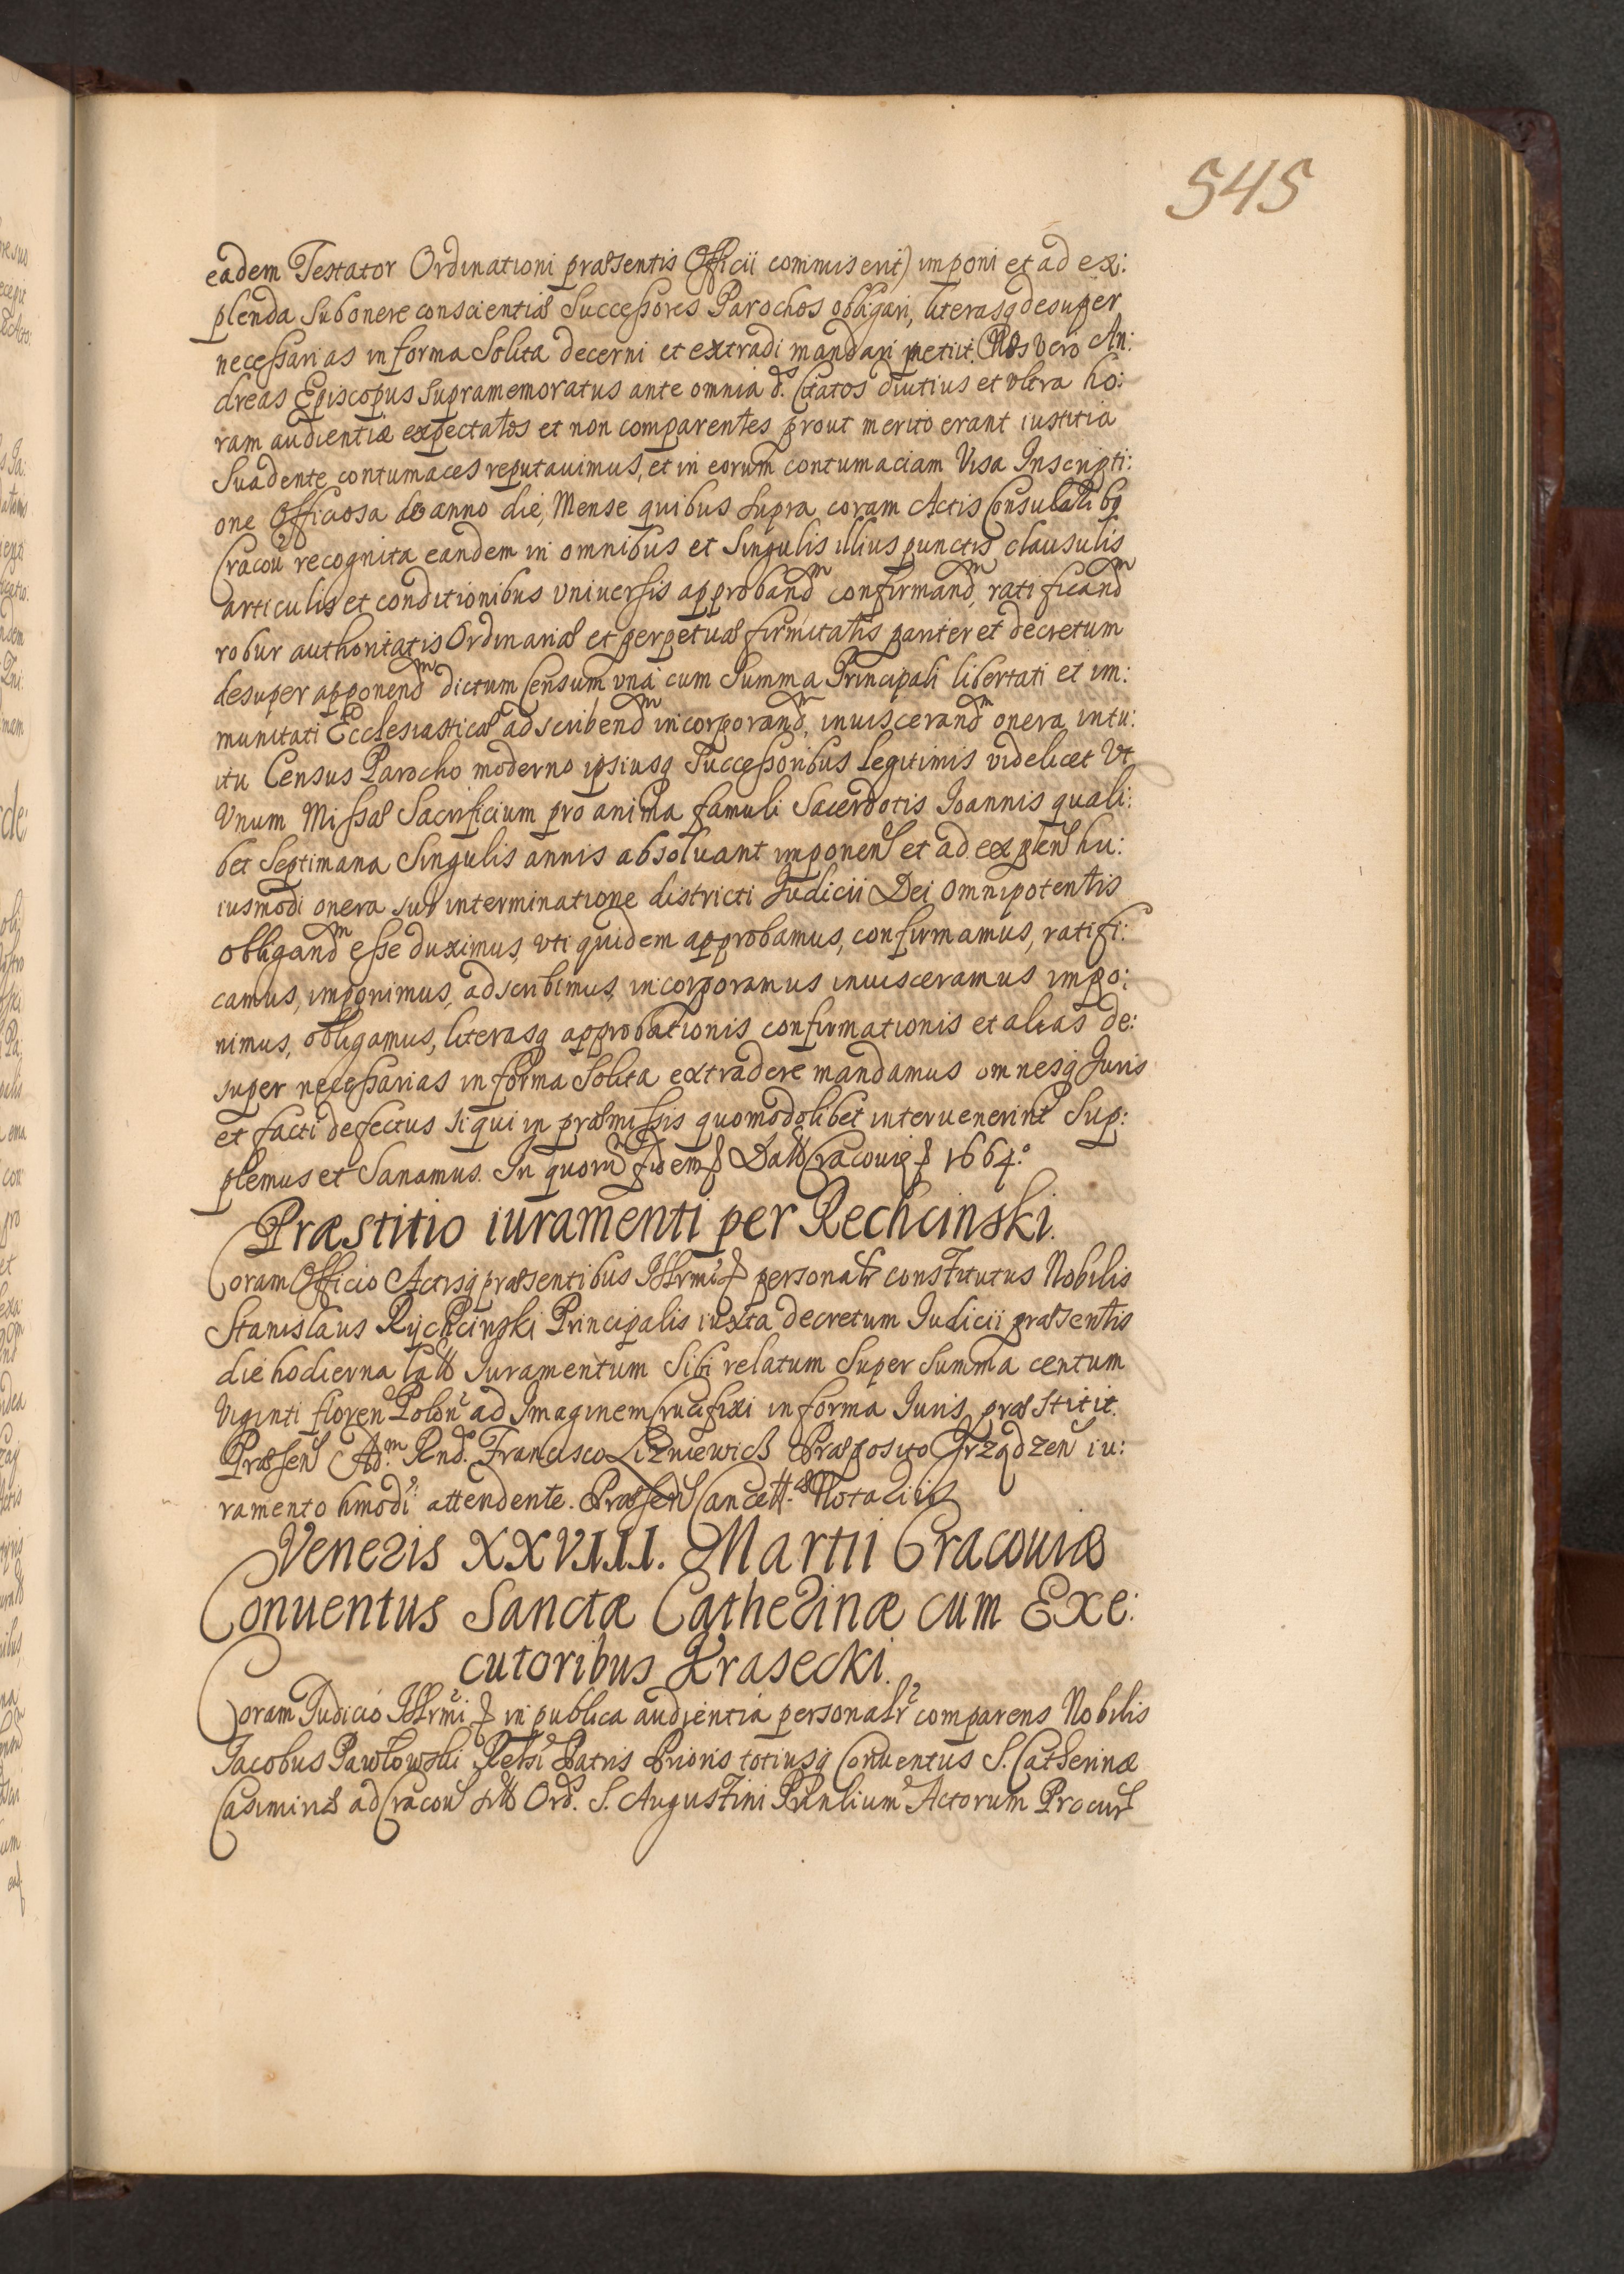 545
eadem Testator Ordinationi præsentis Officii commiserit) imponi et ad ex:
plenda sub onere conscientiæ Successores Parochos obligari, literasq desuper
necessarias in forma Solita decerni et extradi mandari petiit. Nos vero An:
dreas Episcopus supramemoratus ante omnia d. Citatos diutius et vltra ho:
ram audientiæ expectatos et non comparentes prout merito erant iustitia
Suadente contumaces reputauimus, et in eorum contumaciam Visa Inscripti:
one Officiosa de anno die, Mense quibus supra coram Actis Consularibq
Cracou recognita eandem in omnibus et Singulis illius punctis clausulis
articulis et conditionibus vniuersis approband͏m confirmandm, ratificandm
robur authoritatis Ordinariæ et perpetuæ firmitatis pariter et decretum
desuper apponendm dictum Censum vná cum Summa Principali libertati et im:
munitati Ecclesiasticæ adscribendm incorporandm, inuiscerandm onera intu:
itu Census Parocho moderno ipsiusq Successoribus Legitimis videlicet Vt
Vnum Missæ Sacrificium pro anima famuli Sacerdotis Ioannis quali:
bet Septimana Singulis annis absoluant imponen et ad explen hu:
iusmodi onera sub interminatione districti Iudicii Dei omnipotentis
obligandm esse duximus, vti quidem approbamus, confirmamus, ratifi:
camus, imponimus, adscribimus, incorporamus inuisceramus impo:
nimus, obligamus, literasq approbationis confirmationis et alias de:
super necessarias in forma Solita extradere mandamus omnesq Iuris
et facti defectus si qui in præmissis quomodolibet interuenerint Sup:
plemus et Sanamus. In quorū fidem Datt Cracouiæ 1664.°
Præstitio iuramenti per Rechcinski.
Coram Officio Actisq præsentibus Illrmi personalr constitutus Nobilis
Stanislaus Rychcinski Principalis iuxta decretum Iudicii præsentis
die hodierna latt Iuramentum Sibi relatum Super Summa centum
Viginti floren Polon ad Imaginem Crucifixi in forma Iuris præstitit.
Præsen Adm Rnd. Francisco Lizniewich Præposito Trządzen iu:
ramento hmodi attendente. Præsen Cancell. Notariis
Veneris XXVIII. Martii Cracouiæ
Conuentus Sanctæ Catherinæ cum Exe:
cutoribus Krasecki.
Coram Iudicio Illrmi in publica audientia personalr comparens Nobilis
Iacobus Pawłowski Relsi Patris Prioris totiusq Conuentus S. Catherinæ
Casimiriæ ad Cracou Ord. S. Augustini Prinlium Actorum Procur